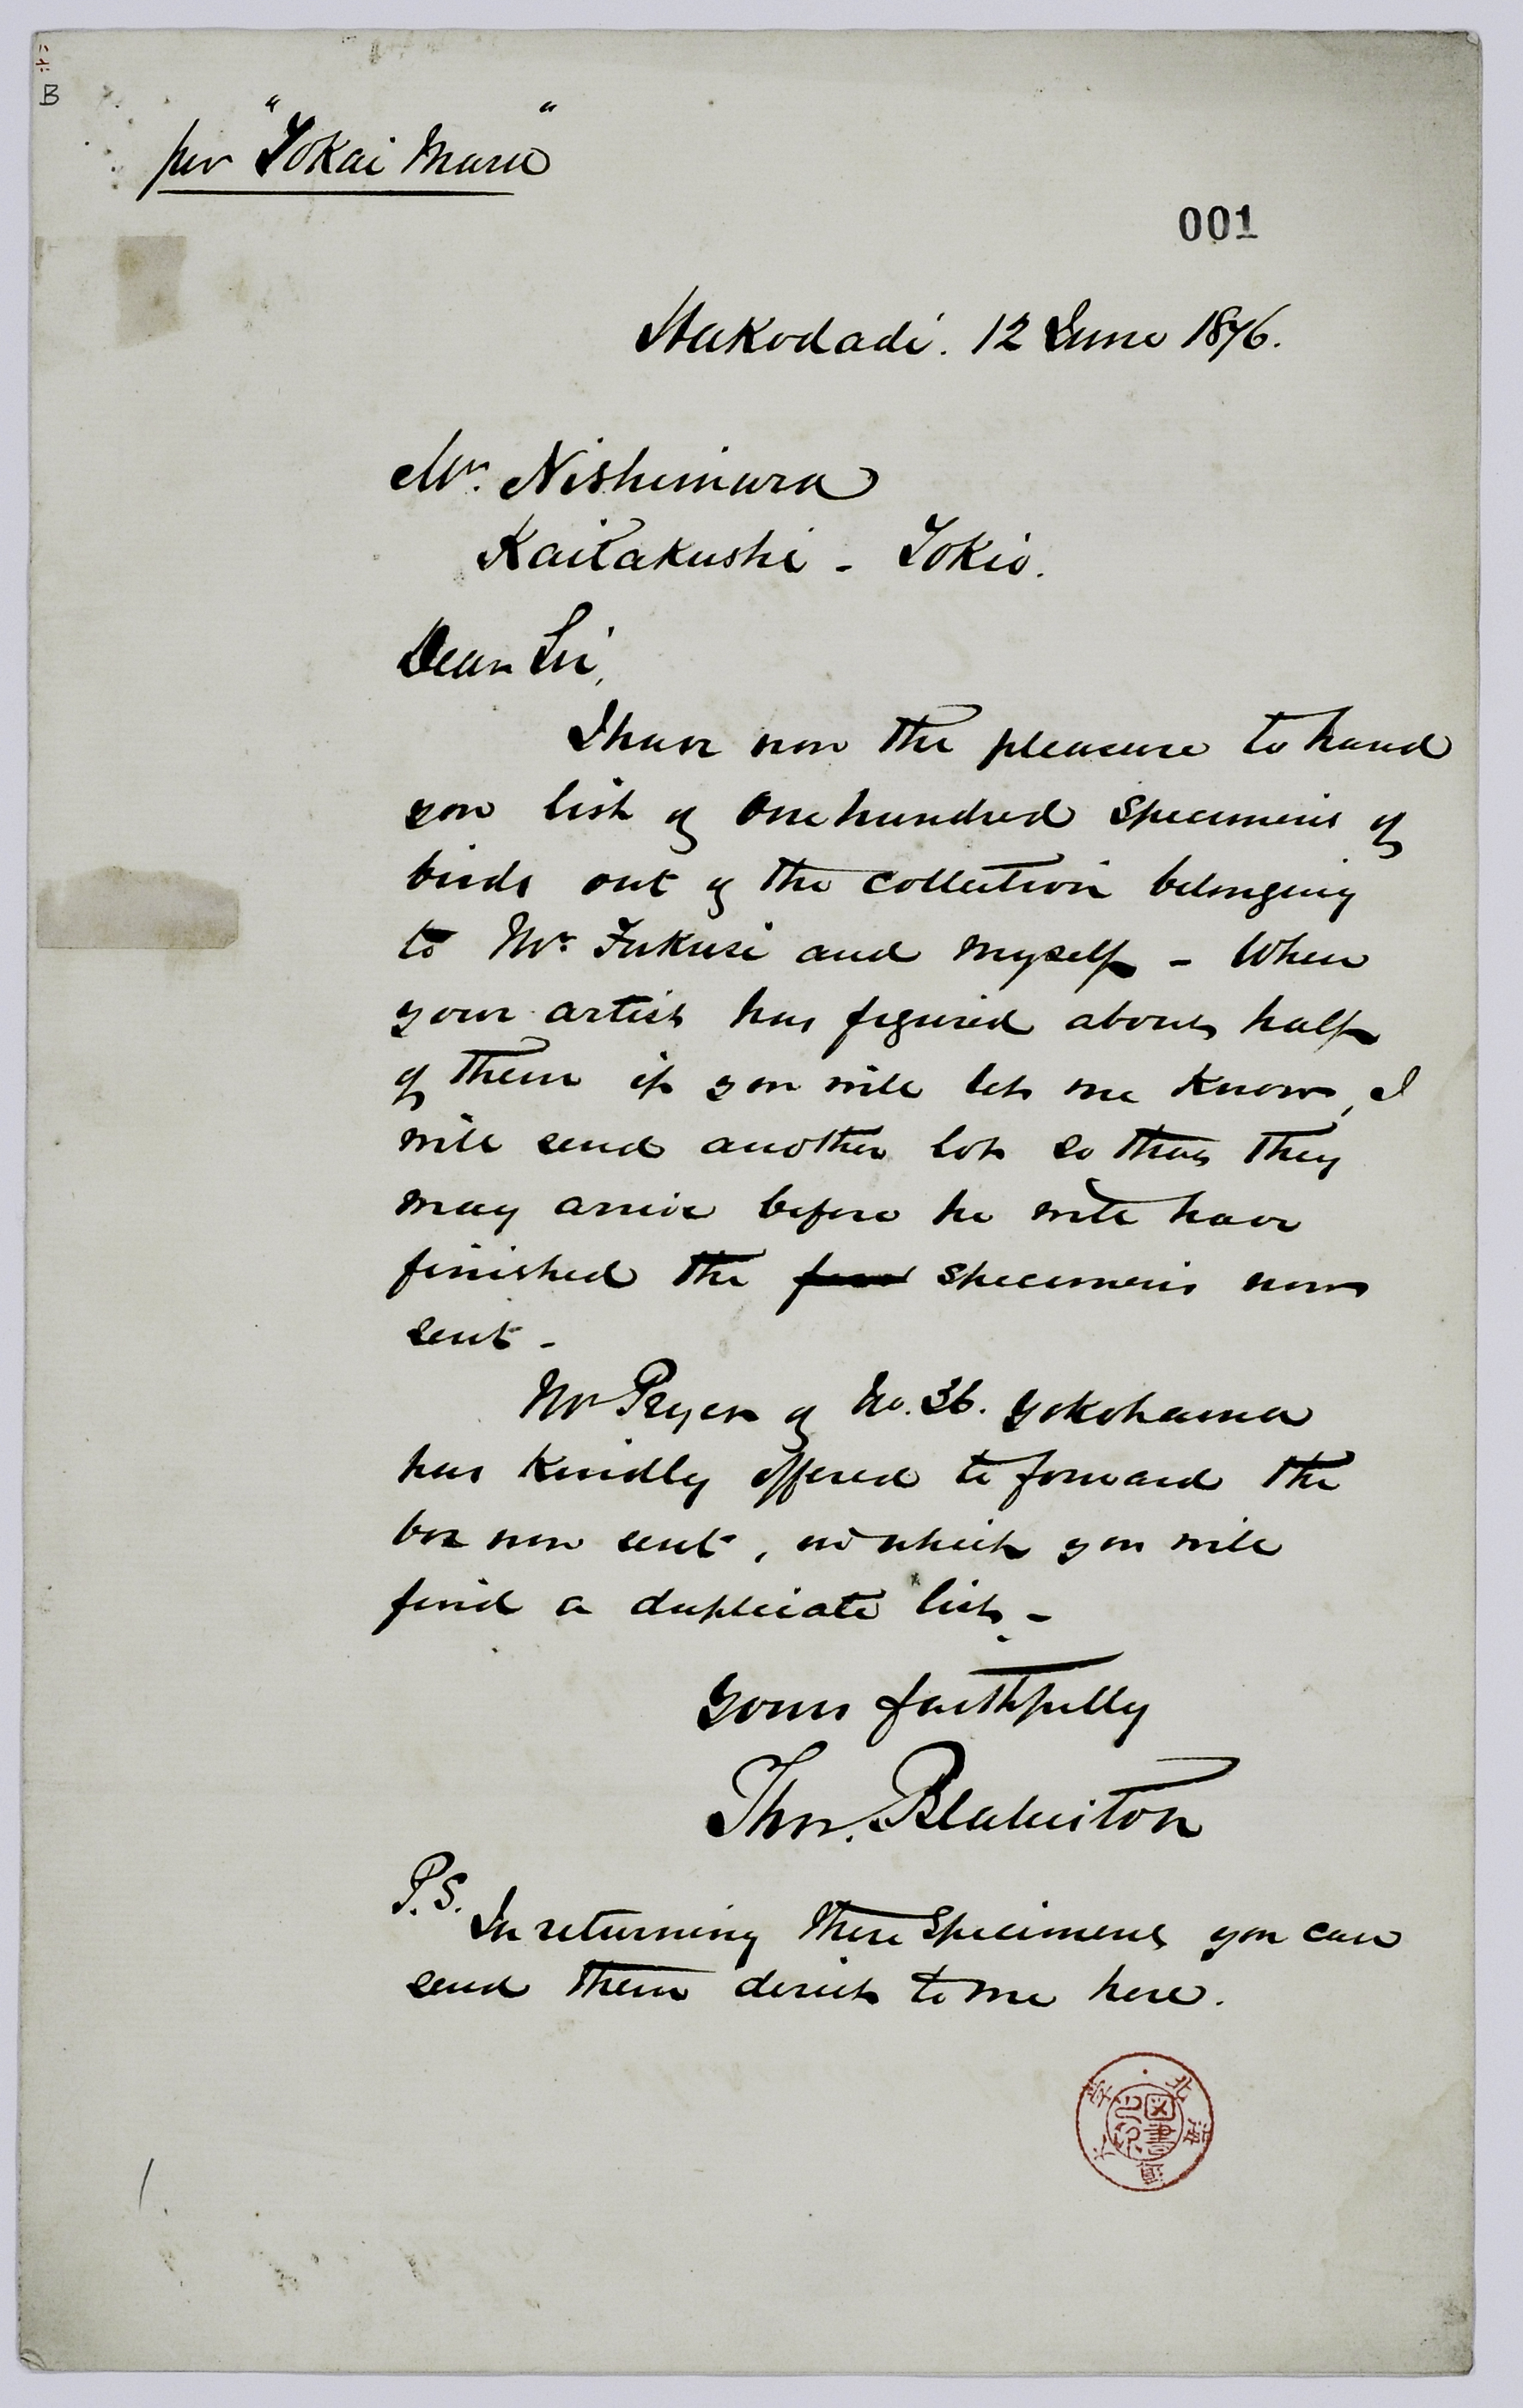 B
per "Tokai Maru"
001
Hakodadi. 12 June 1876.
Mr. Nishimura
Kaitakushi - Tokio.
Dear Sir,
I have now the pleasure to hand
you list of One hundred specimens of
birds out of the collection belonging
to Mr. Fukusi and myself - When
your artist has figured about half
of them if you will let me know, I
will send another lot so that they
may arrive before he will have
finished the specimens now
sent -
Mr Pryer of No. 36. Yokohama
has kindly offered to forward the
box now sent, in which you will
find a duplicate list -
Yours faithfully
Thos. Blakiston
P.S.
In returning these specimens you can
send them direct to me here.
図書
1.